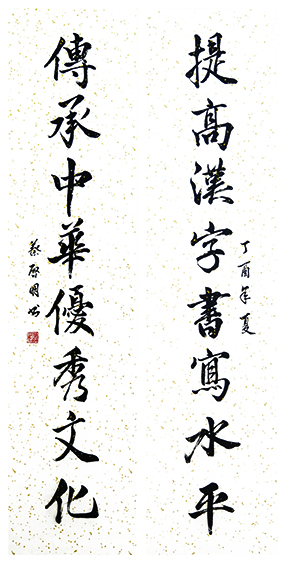 提高漢字書寫水平
丁酉年夏
傳承中華優秀文化
蔡啟明書